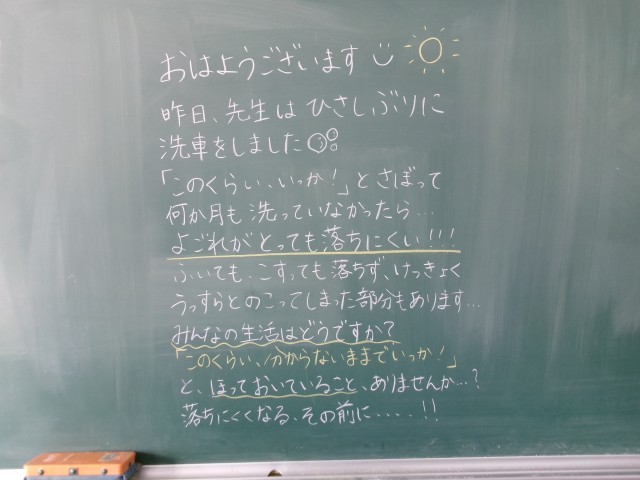 おはようございます
昨日、先生は ひさしぶりに
洗車をしました
「このくらい、いっか!」とさぼって
何か月も洗っていなかったら…
よごれがとっても落ちにくい!!!
ふいても、こすっても落ちず、けっきょく
うっすらとのこってしまった部分もあります…
みんなの生活はどうですか?
「このくらい、分からないままでいっか!」
と、ほっておいていること、ありませんか…?
落ちにくくなる、その前に....!!